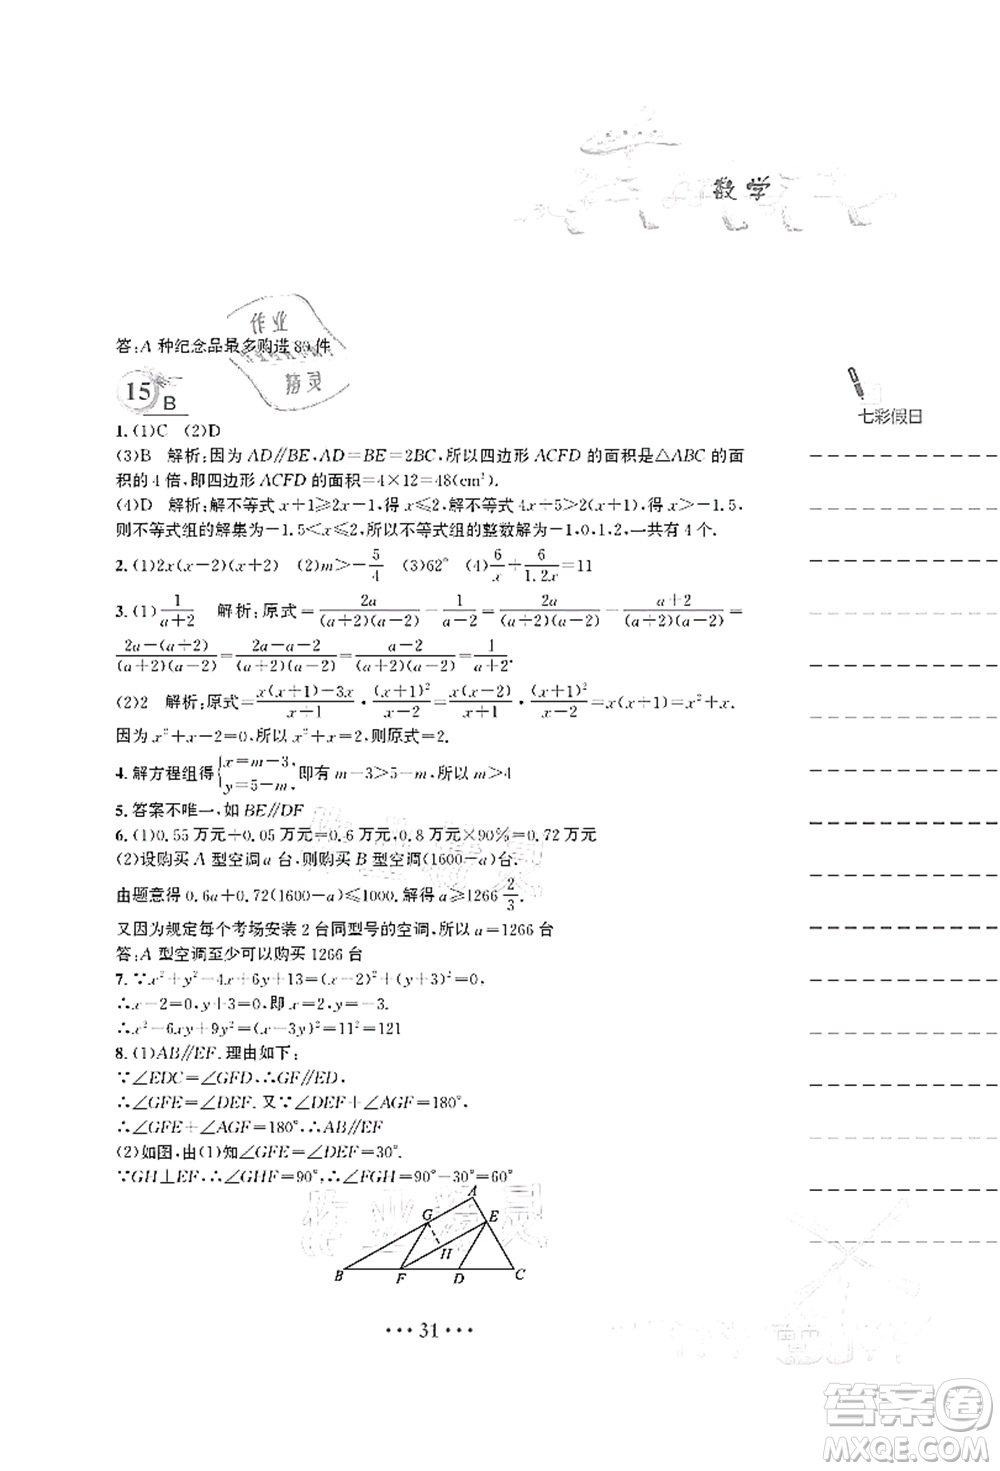 数学
答:A 种纪念品最多购进 80 件
作业
精灵
15
B
七彩假日
1. (1)C (2)D
(3)B 解析:因为 AD∥BE,AD=BE=2BC,所以四边形 ACFD 的面积是△ABC 的面
积的 4 倍,即四边形 ACFD 的面积=4×12=48(cm²).
(4)D 解析:解不等式 x+1≥2x-1,得 x≤2,解不等式 4x+5>2(x+1),得 x>-1.5,
则不等式组的解集为-1.5<x≤2,所以不等式组的整数解为-1,0,1,2,一共有 4 个.
2. (1)2x(x-2)(x+2) (2)m>-5/4 (3)62° (4)6/x÷6/1.2x=11
3. (1)1/(a+2) 解析:原式=2a/((a+2)(a-2))-1/(a-2)=2a/((a+2)(a-2))-(a+2)/((a+2)(a-2))=
(2a-(a+2))/((a+2)(a-2))=(2a-a-2)/((a+2)(a-2))=(a-2)/((a+2)(a-2))=1/(a+2).
(2)2 解析:原式=(x(x+1)-3x)/(x+1)·(x+1)²/(x-2)=x(x-2)/(x+1)·(x+1)²/(x-2)=x(x+1)=x²+x.
因为 x²+x-2=0,所以 x²+x=2,则原式=2.
4. 解方程组得{x=m-3, y=5-m, 即有 m-3>5-m,所以 m>4
5. 答案不唯一,如 BE∥DF
6. (1)0.55 万元+0.05 万元=0.6 万元,0.8 万元×90%=0.72 万元
(2)设购买 A 型空调 a 台,则购买 B 型空调(1600-a)台.
由题意得 0.6a+0.72(1600-a)≤1000. 解得 a≥1266 2/3.
又因为规定每个考场安装 2 台同型号的空调,所以 a=1266 台
答:A 型空调至少可以购买 1266 台
7. ∵x²+y²-4x+6y+13=(x-2)²+(y+3)²=0,
∴x-2=0,y+3=0,即 x=2,y=-3,
∴x²-6xy+9y²=(x-3y)²=11²=121
8. (1)AB∥EF. 理由如下:
∵∠EDC=∠GFD,∴GF∥ED,
∴∠GFE=∠DEF. 又∵∠DEF+∠AGF=180°,
∴∠GFE+∠AGF=180°,∴AB∥EF
(2)如图,由(1)知∠GFE=∠DEF=30°.
∵GH⊥EF,∴∠GHF=90°,∴∠FGH=90°-30°=60°
作业精灵
A
G
E
H
B
F
D
C
··· 31 ···
答案圈
MXQE.COM